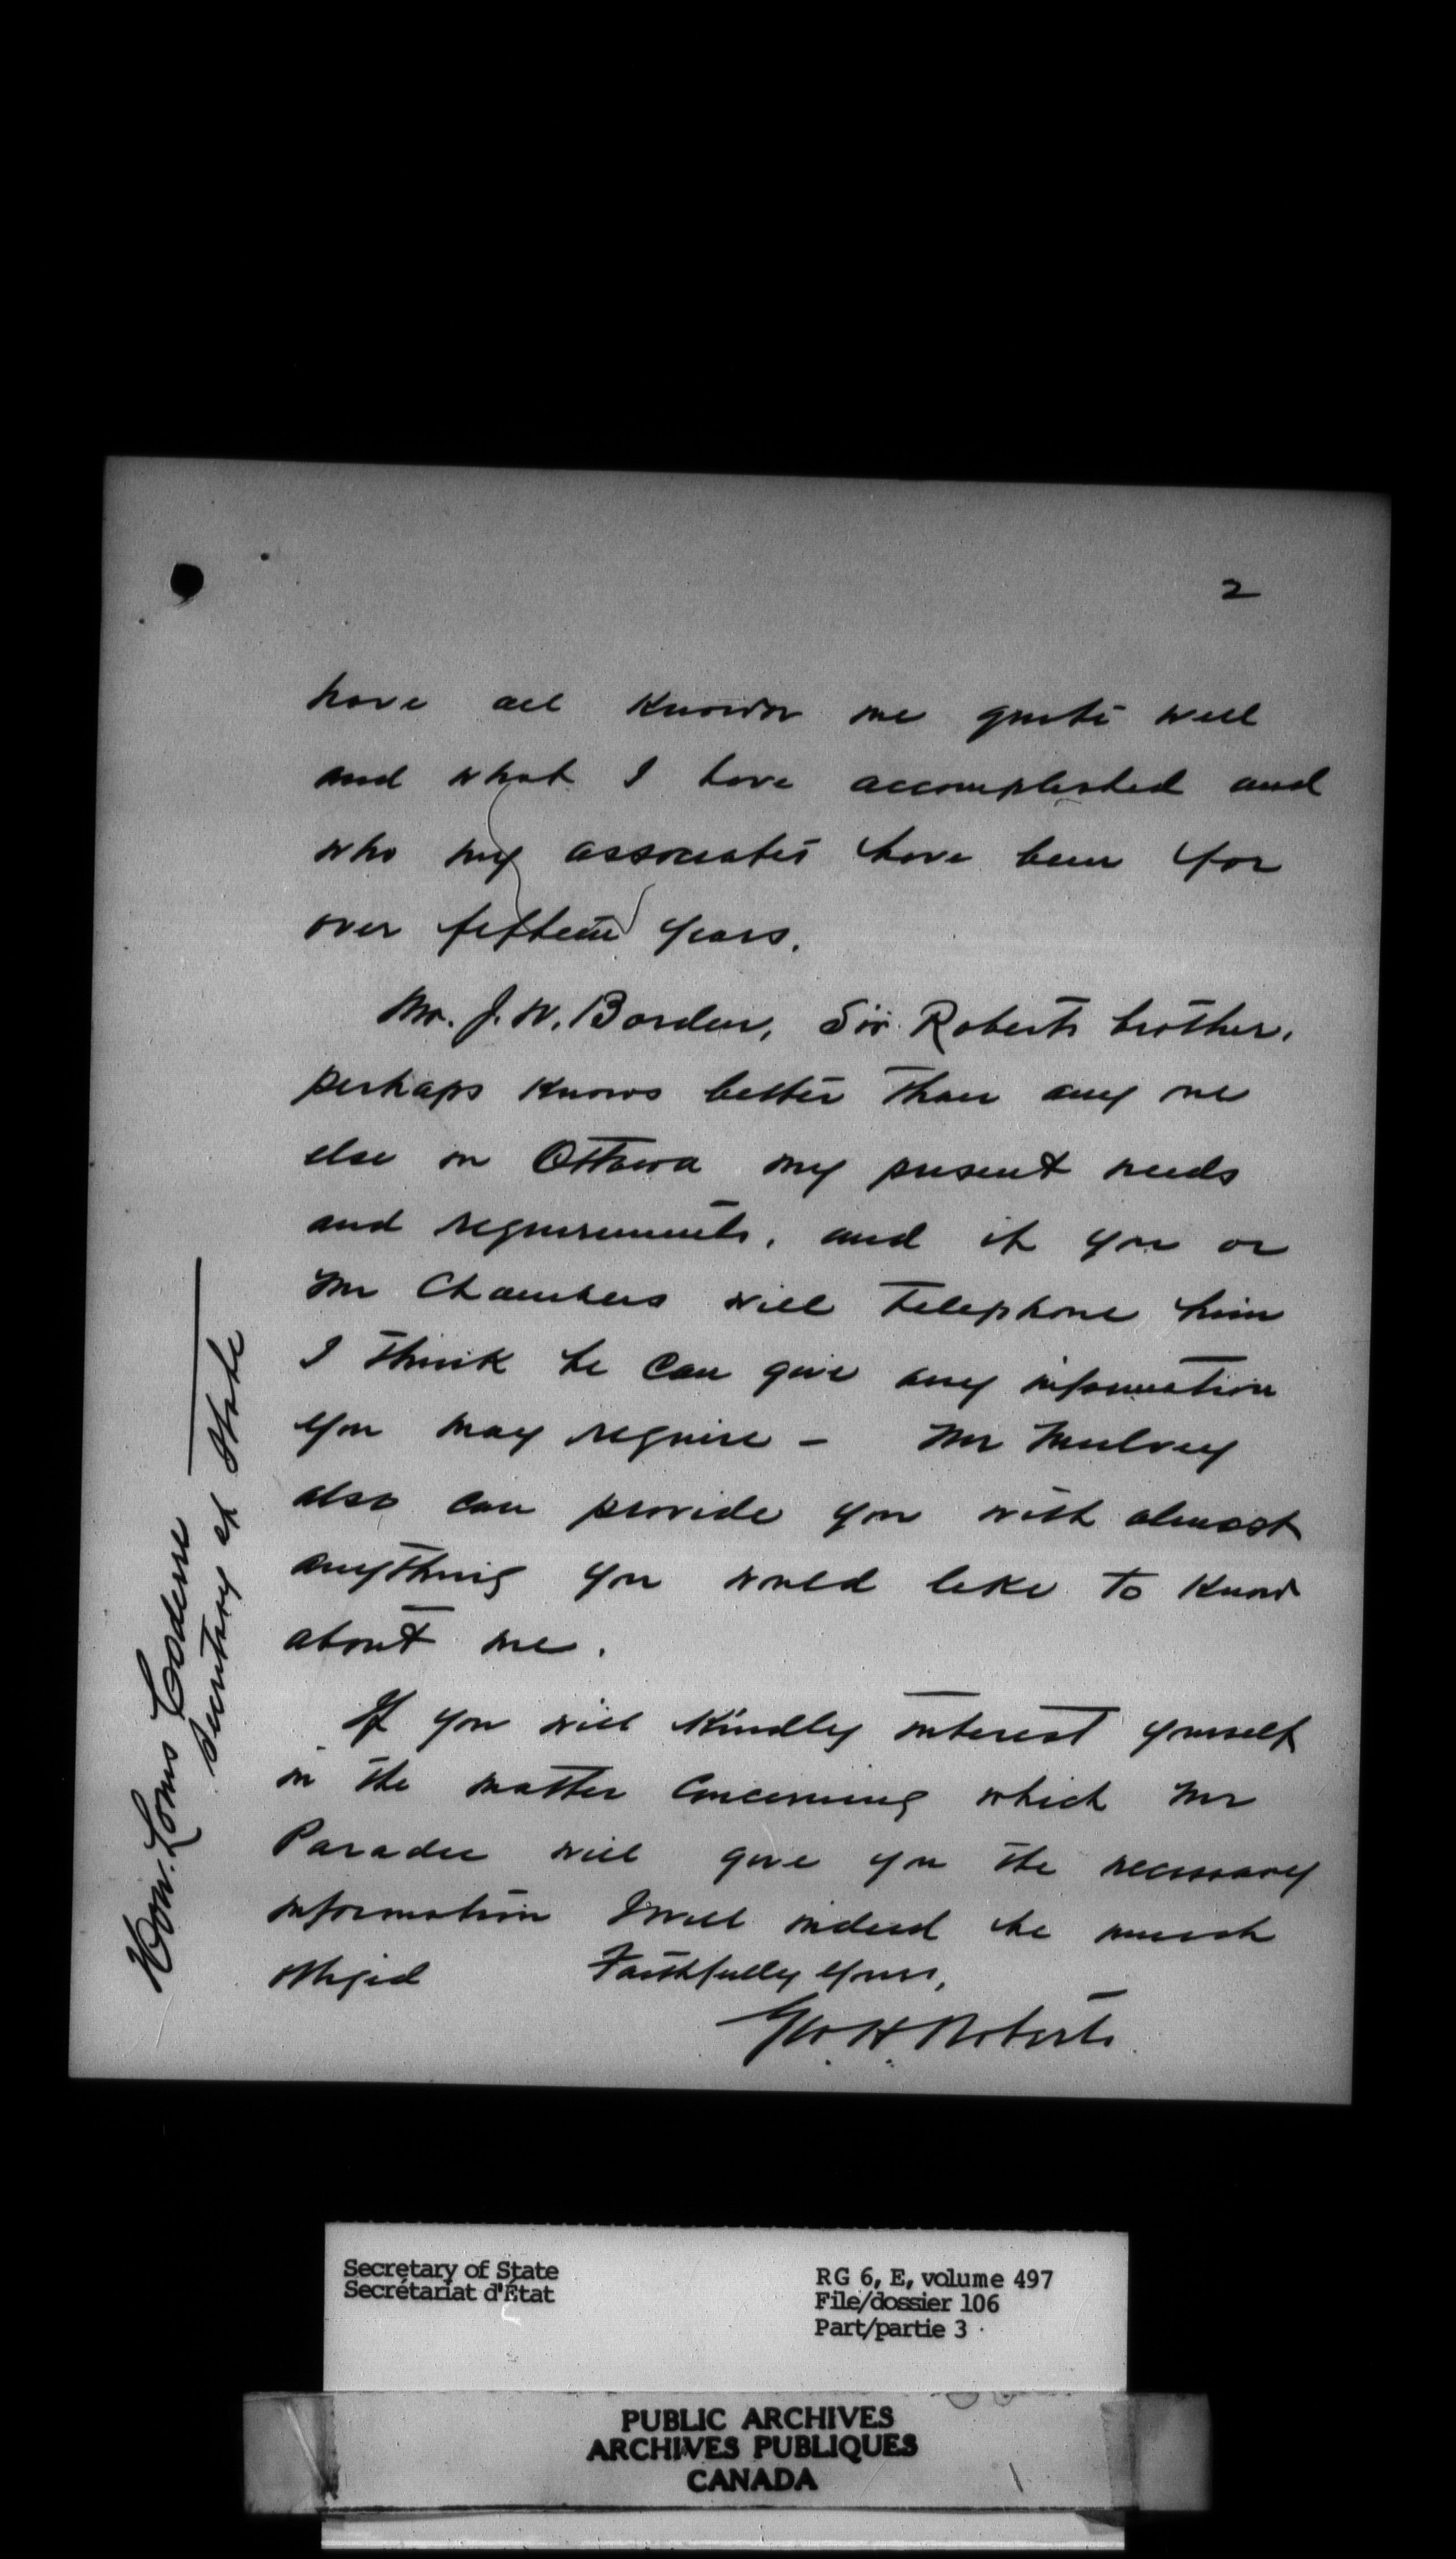 2
have all known me quite well
and what I have accomplished and
who my associates have been for
over fifteen years.
Mr. J. W. Borden, Sir Roberts brother,
perhaps knows better than any one
else in Ottawa my present needs
and requirements, and if you or
Mr Chambers will telephone him
I think he can give any information
you may require - Mr Mulvey
also can provide you with almost
anything you would like to know
about me.
If you will kindly interest yourself
in the matter concerning which Mr
Paradee will give you the necessary
information I will indeed be much
obliged Faithfully yours,
Geo. H. Roberts
Hon. Louis Coderre
Secretary of State
Secretary of State
Secrétariat d'État
RG 6, E, volume 497
File/dossier 106
Part/partie 3
PUBLIC ARCHIVES
ARCHIVES PUBLIQUES
CANADA